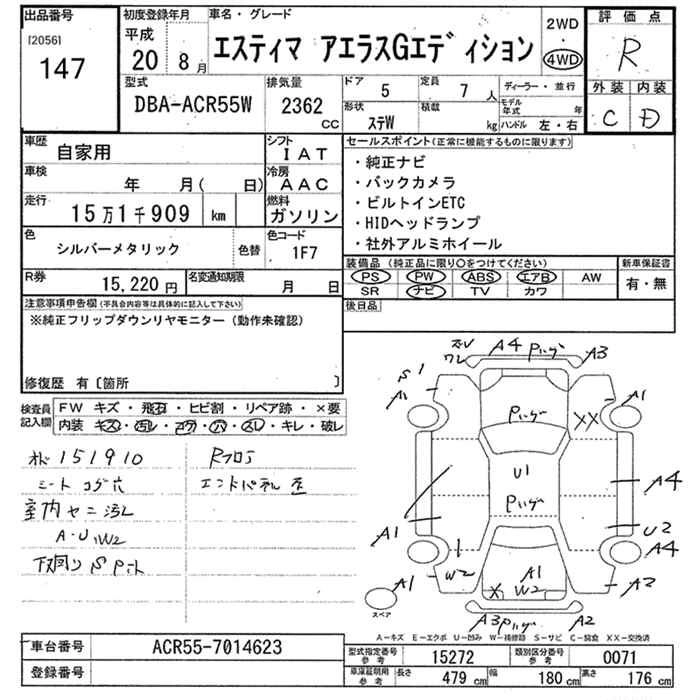 出品番号
[2056]
147
初度登録年月
平成
20 8月
車名・グレード
エスティマ アエラスGエディション
2WD
・
4WD
評価点
R
外装 内装
C D
型式
DBA-ACR55W
排気量
2362
CC
ドア 5
定員 7人
形状 ステW
積載 kg
ディーラー・並行
モデル年式 年
ハンドル 左・右
車歴
自家用
シフト
IAT
車検
年 月( 日)
冷房
AAC
走行
15万1千909 km
燃料
ガソリン
色
シルバーメタリック
色替
色コード
1F7
R券
15,220円
名変通知期限
月 日
セールスポイント(正常に機能するものに限ります)
・純正ナビ
・バックカメラ
・ビルトインETC
・HIDヘッドランプ
・社外アルミホイール
装備品(純正品に限り○をつけてください)
PS PW ABS エアB AW
SR ナビ TV カワ
新車保証書
有・無
後日品
注意事項申告欄(不具合内容等は具体的に記入して下さい)
※純正フリップダウンリヤモニター(動作未確認)
修復歴 有〔箇所 〕
検査員
記入欄
FW キズ・飛石・ヒビ割・リペア跡・×要
内装・キズ・汚レ・コゲ・穴・スレ・キレ・破レ
151910
シート コゲ穴
室内 ヤニ 汚レ
A・U・W2
下廻り Sアト
Rフロア
エンドパネル
A4 Pハゲ A3
S1
A1
A1
Pハゲ
XX
U1
Pハゲ
A4
A1
U2
A4
W2
A1
X W2
A1
A2
スペア
A3 Pハゲ A2
A-キズ E-エクボ U-凹み W-補修跡 S-サビ C-腐食 XX-交換済
車台番号
ACR55-7014623
登録番号
型式指定番号
参考
15272
類別区分番号
参考
0071
車庫証明用
参考
長さ 479 cm
幅 180 cm
高さ 176 cm